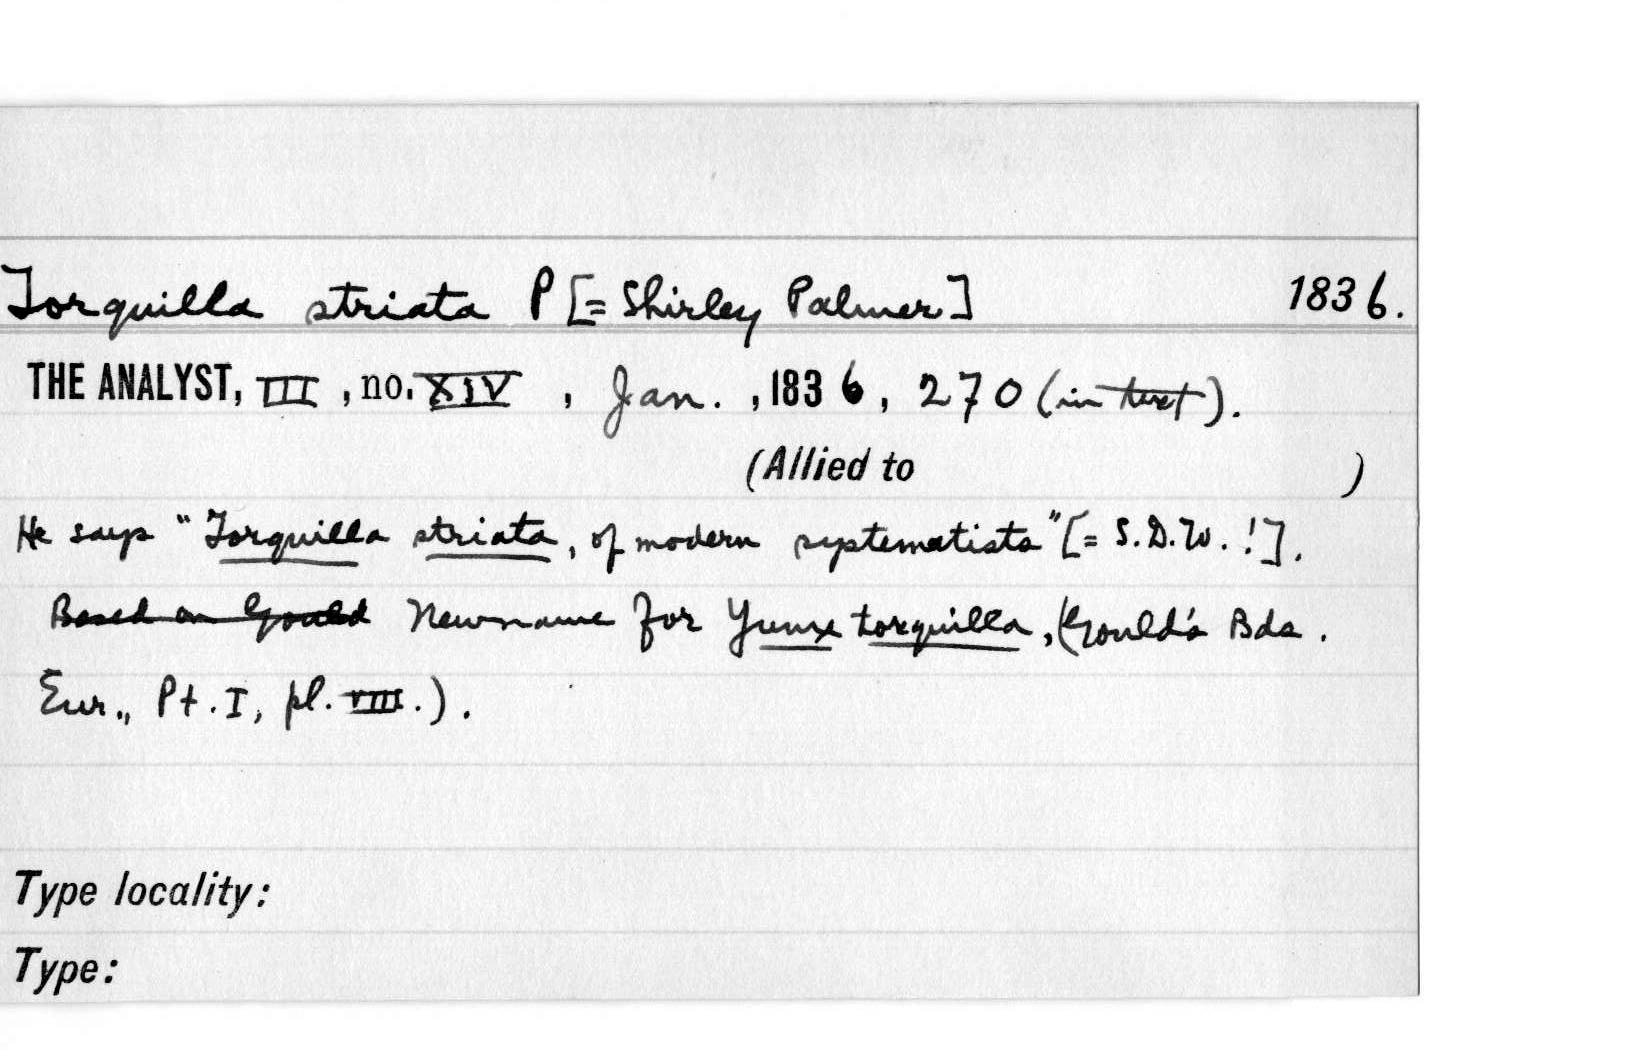 Torquilla striata P [= Shirley Palmer] 1836.
THE ANALYST, III, no. XIV, Jan., 1836, 270 (in text).
(Allied to )
He says "Torquilla striata, of modern systematists" [= S.D.W.!].
Based on Gould New name for Yunx torquilla, (Gould's Bds.
Eur., Pt. I, pl. VIII.).
Type locality:
Type: